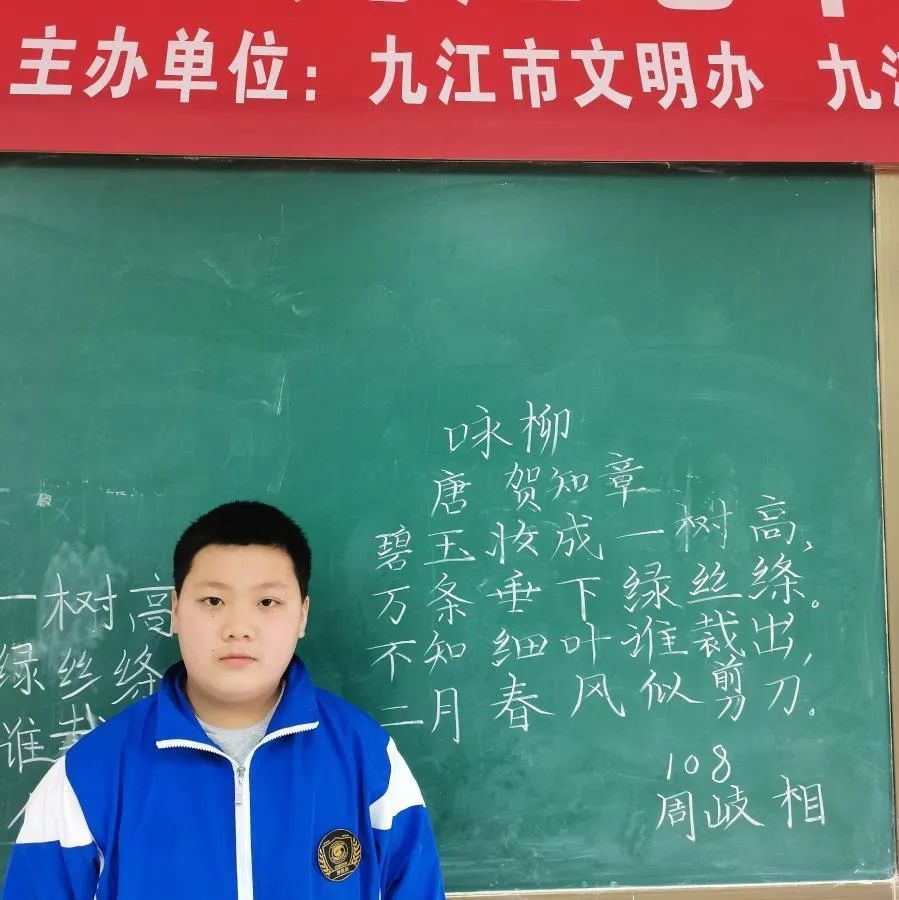 主办单位：九江市文明办 九江
咏柳
唐 贺知章
碧玉妆成一树高，
万条垂下绿丝绦。
不知细叶谁裁出，
二月春风似剪刀。
108
周岐相
一树高
绿丝绦
谁裁